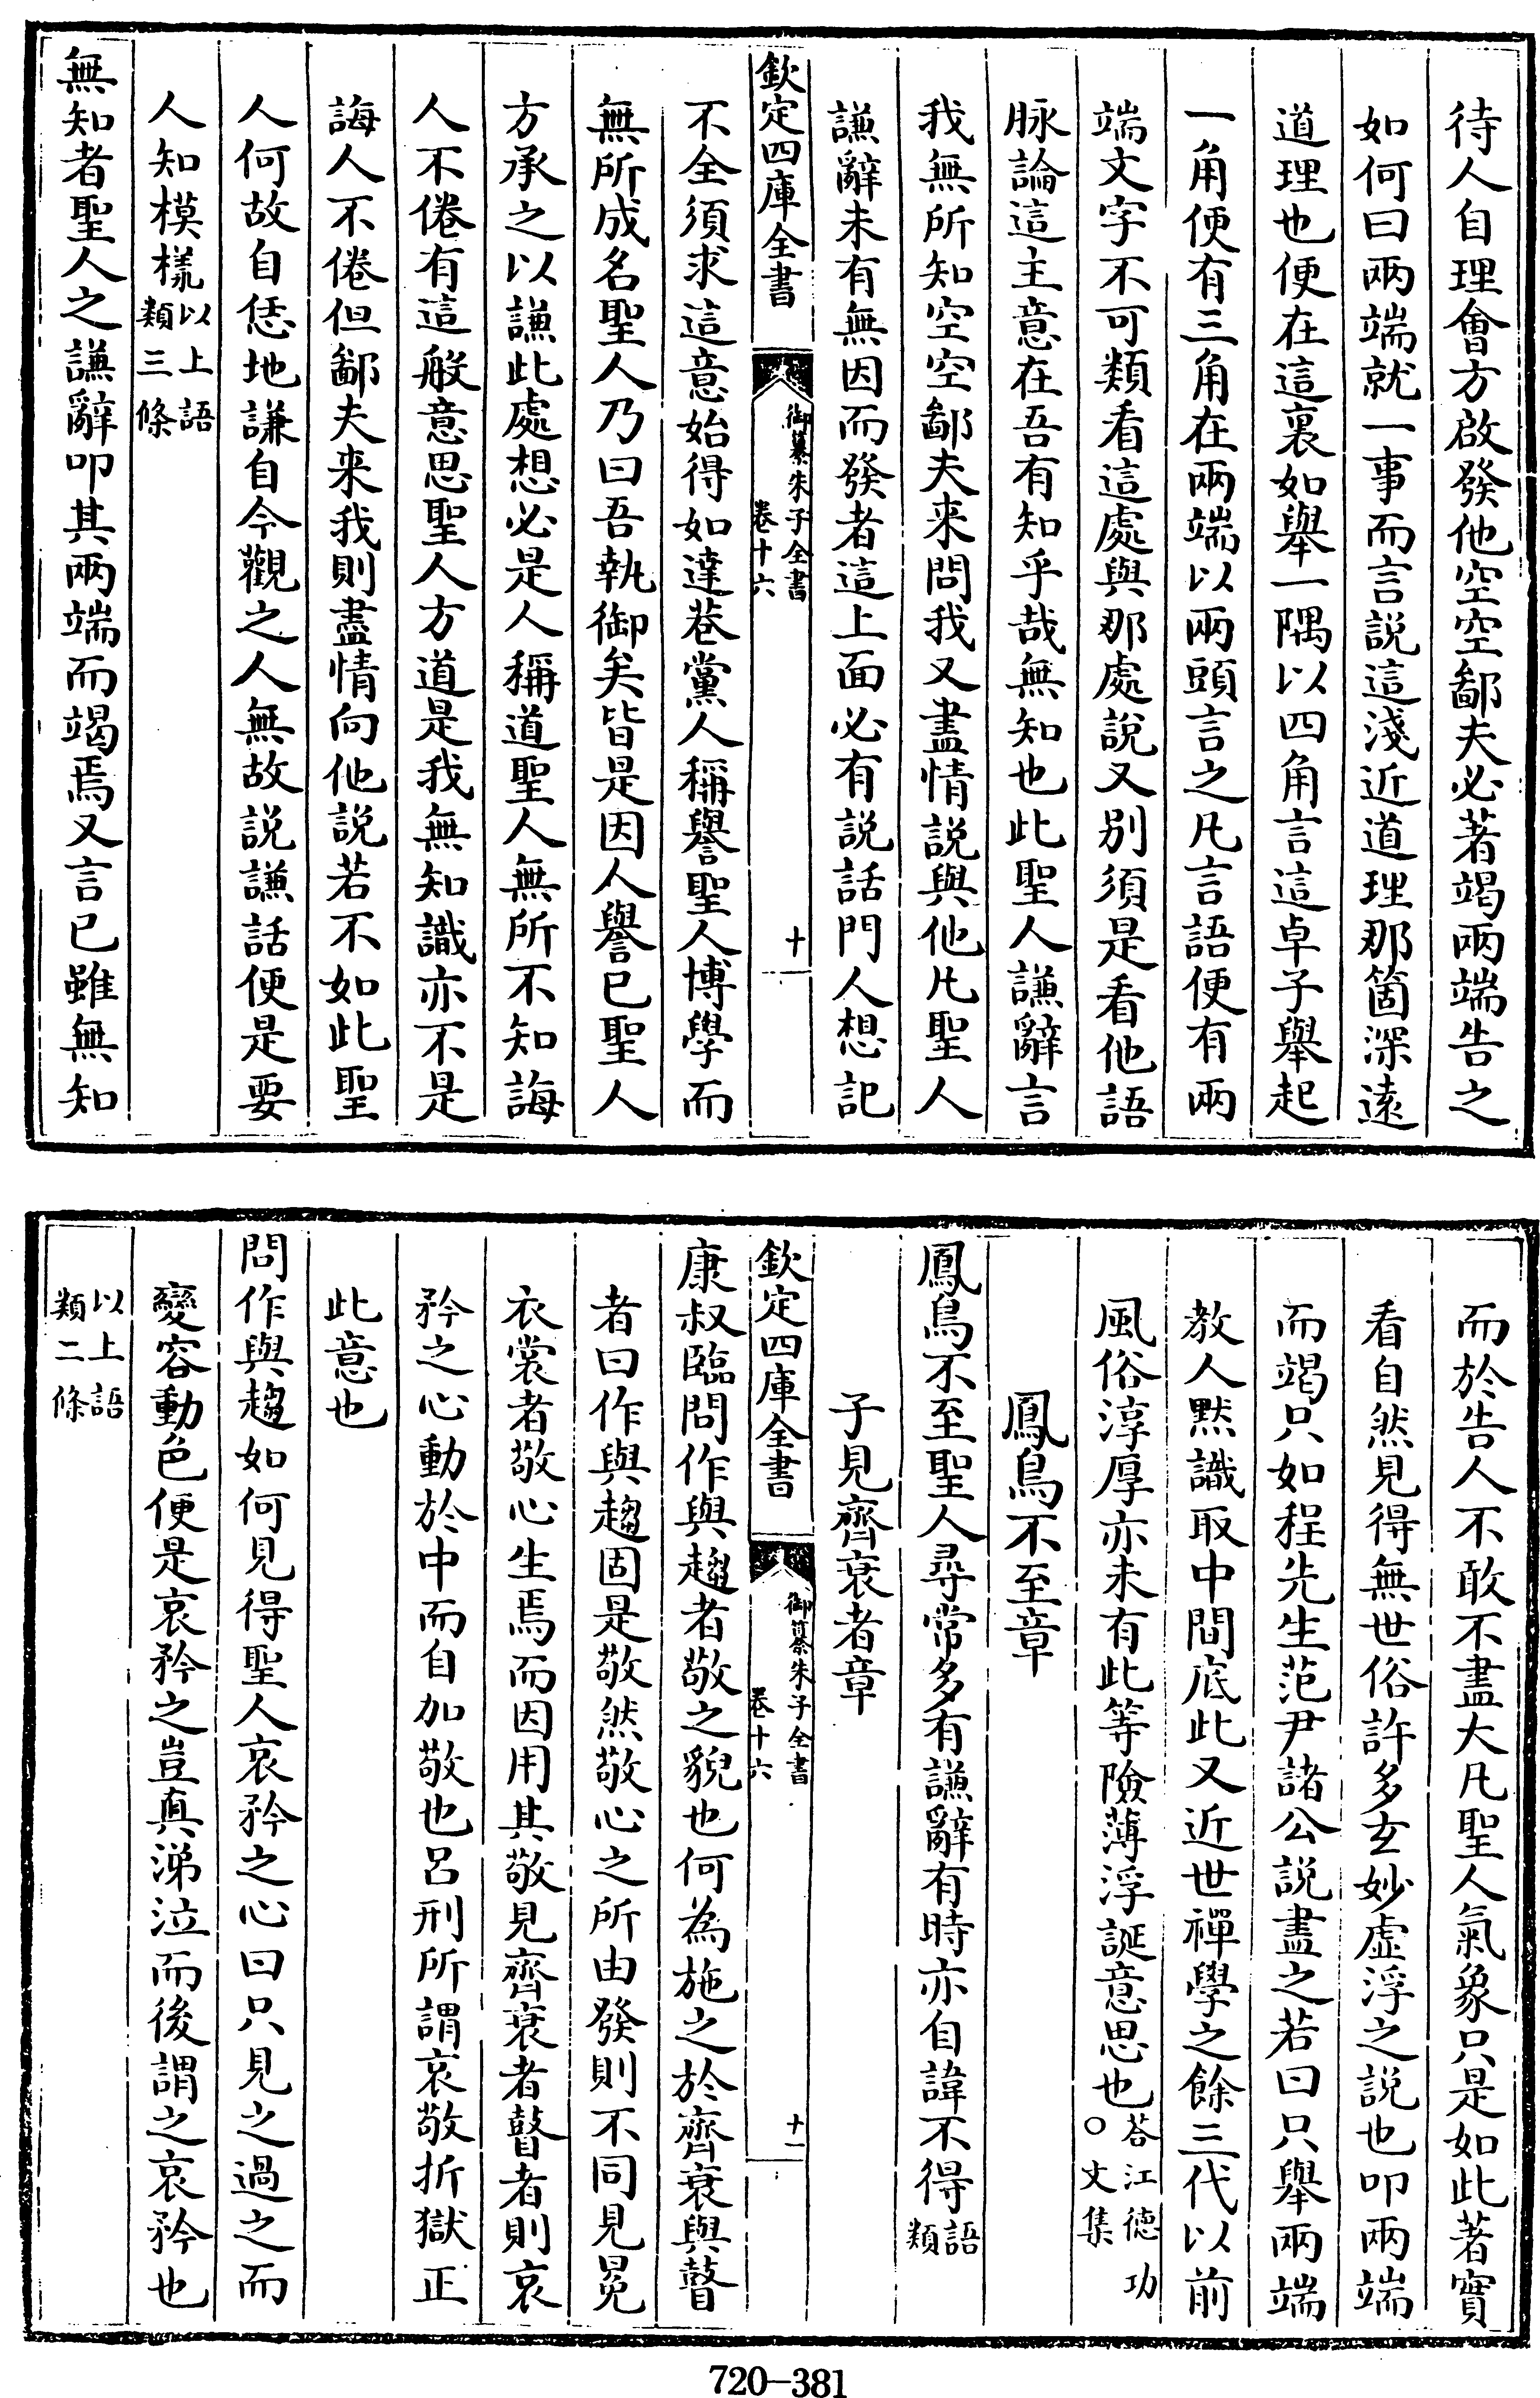 待人自理會方啟發他空空鄙夫必著竭兩端告之
如何曰兩端就一事而言說這淺近道理那箇深遠
道理也便在這裏如舉一隅以四角言這卓子舉起
一角便有三角在兩端以兩頭言之凡言語便有兩
端文字不可類看這處與那處說又別須是看他語
脉論這主意在吾有知乎哉無知也此聖人謙辭言
我無所知空空鄙夫来問我又盡情説與他凡聖人
謙辭未有無因而發者這上面必有説話門人想記
欽定四庫全書
御纂朱子全書
卷十六
十
不全須求這意始得如達巷黨人稱譽聖人博學而
無所成名聖人乃曰吾執御矣皆是因人譽已聖人
方承之以謙此處想必是人稱道聖人無所不知誨
人不倦有這般意思聖人方道是我無知識亦不是
誨人不倦但鄙夫来我則盡情向他説若不如此聖
人何故自恁地謙自今觀之人無故説謙話便是要
人知模樣以上語類三條
無知者聖人之謙辭叩其兩端而竭焉又言已雖無知
而於告人不敢不盡大凡聖人氣象只是如此著實
看自然見得無世俗許多玄妙虛浮之説也叩兩端
而竭只如程先生范尹諸公説盡之若曰只舉兩端
教人黙識取中間底此又近世禪學之餘三代以前
風俗淳厚亦未有此等險薄浮誕意思也荅江徳功○文集
鳳鳥不至章
鳳鳥不至聖人尋常多有謙辭有時亦自諱不得語類
子見齊衰者章
欽定四庫全書
御纂朱子全書
卷十六
十一
康叔臨問作與趨者敬之貌也何為施之於齊衰與瞽
者曰作與趨固是敬然敬心之所由發則不同見冕
衣裳者敬心生焉而因用其敬見齊衰者瞽者則哀
矜之心動於中而自加敬也呂刑所謂哀敬折獄正
此意也
問作與趨如何見得聖人哀矜之心曰只見之過之而
變容動色便是哀矜之豈真涕泣而後謂之哀矜也
以上語類二條
720-381